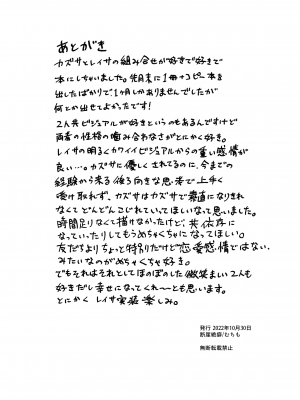 あとがき
カズサとレイサの組み合せが好きで好きで
本にしちゃいました。先月末に1冊+コピー本を
出したばかりで1ヶ月しかありませんでしたが
何とか出せてよかったです!
2人共ビジュアルが好きというのもあるんですけど
両者の性格の噛み合わなさがとにかく好き。
レイサの明るくカワイイビジュアルからの重い感情が
良い…。カズサに優しくされてるのに、今までの
経験から来る後ろ向きな思考で上手く
受け取れず、カズサはカズサで素直になりきれ
なくてどんどんこじれていてほしいなって思いました。
時間足りなくて描けなかったけど、共依存に
なっていったりしてもうめちゃくちゃになってほしい。
友だちよりちょっと特別だけど恋愛感情ではない、
みたいなのがめちゃくちゃ好き。
でもそれはそれとしてほのぼのした微笑ましい2人も
好きだし幸せになってくれ〜とも思います。
とにかく レイサ実装楽しみ。
発行 2022年10月30日
断崖絶壁/むちも
無断転載禁止